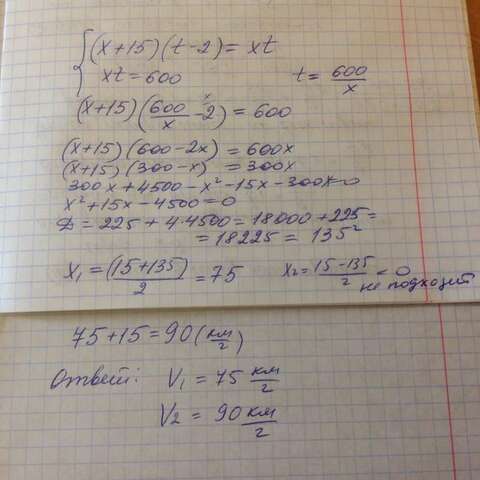 { (x+15)(t-2) = xt
xt = 600 t = 600/x
(x+15)(600/x - 2) = 600
(x+15)(600-2x) = 600x
(x+15)(300-x) = 300x
300x+4500-x²-15x-300x=0
x²+15x-4500=0
D = 225 + 4·4500 = 18000 + 225 =
= 18225 = 135²
x₁ = (15+135)/2 = 75 x₂ = 15-135/2 < 0
не подходит
75+15 = 90 (км/г)
Ответ: V₁ = 75 км/г
V₂ = 90 км/г